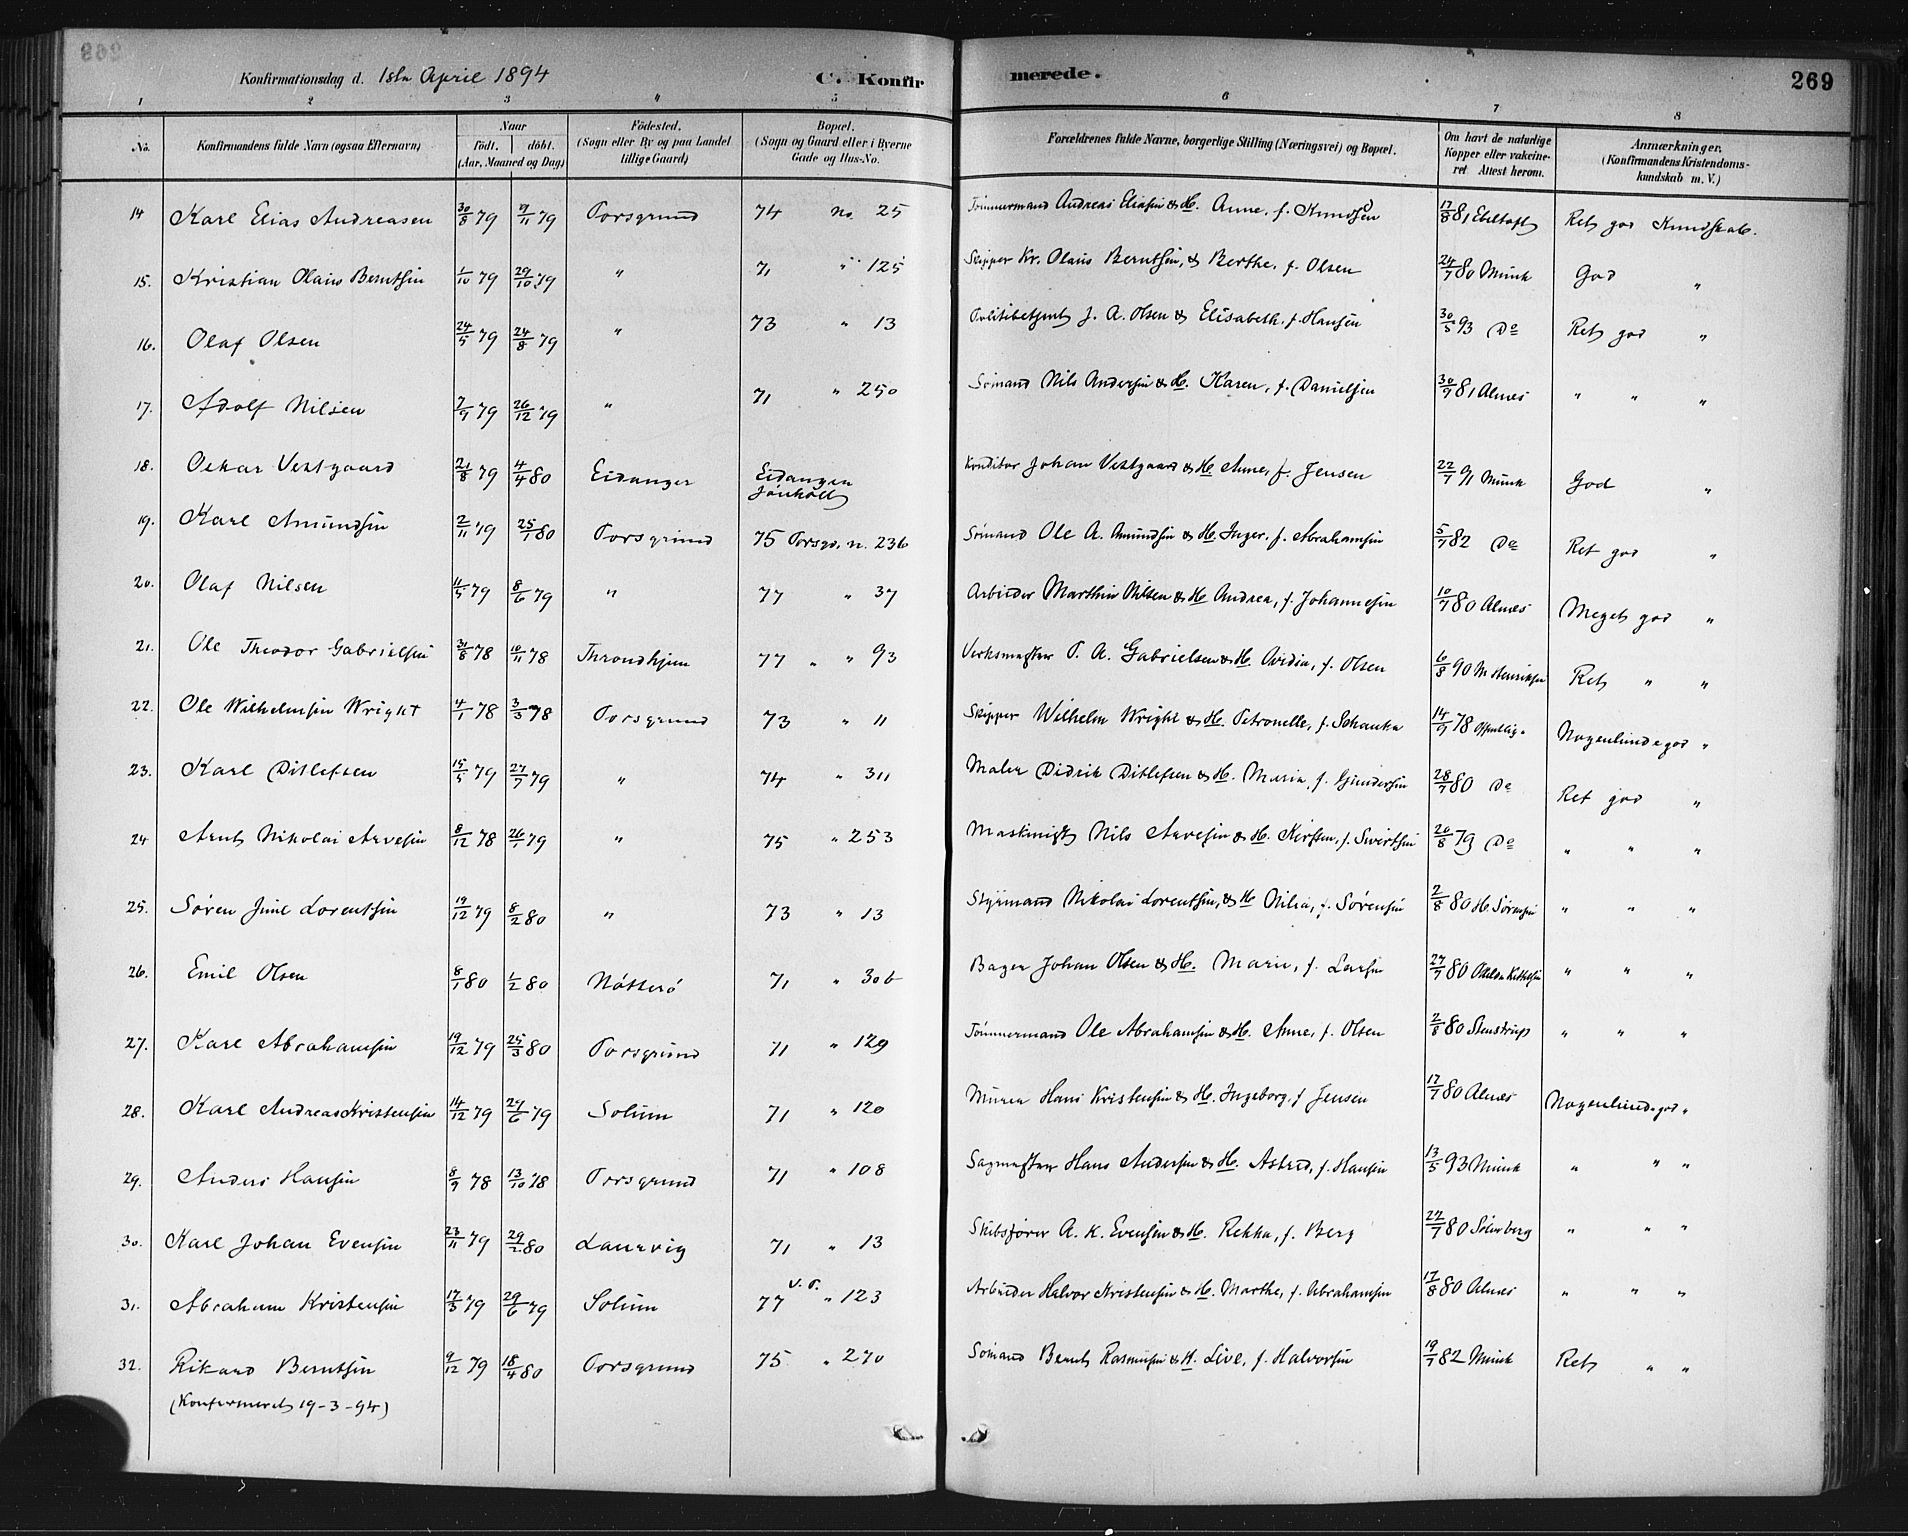 Konfirmationsdag d. 1ste April 1894 C. Konfirmerede. 269
1 2 3 4 5 6 7 8
No. Konfirmandens fulde Navn (ogsaa Efternavn) Naar født. døbt. (Aar, Maaned og Dag) Fødested. (Sogn eller By og paa Landet tillige Gaard) Bopæl. (Sogn og Gaard eller i Byerne Gade og Hus-No. Forældrenes fulde Navne, borgerlige Stilling (Næringsvei) og Bopæl. Om havt de naturlige Kopper eller vakcineret Attest herom. Anmærkninger. (Konfirmandens Kristendomskundskab m. V.)
14 Karl Elias Andreasen 30/8 79 7/11 79 Porsgrund 74 no. 25 Tömmermand Andreas Eliasen & H. Anne, f. Knudsen 17/8 81 Ebeltoft Ret god Kundskab.
15. Kristian Olaus Berntsen 1/10 79 29/10 79 " 71 " 125 Skipper Kr. Olaus Berntsen, & Berthe, f. Olsen 24/7 80 Munk God "
16. Olaf Olsen 24/5 79 24/8 79 " 73 " 13 Politibetjent J. A. Olsen & Elisabeth f. Hansen 30/5 93 Do Ret god "
17. Adolf Nilsen 7/9 79 26/12 79 " 71 " 250 Sömand Nils Andersen & H. Karen, f. Danielsen 30/9 81 Alnæs " " "
18. Oskar Vestgaard 21/8 79 4/4 80 Eidanger Eidanger Jönholt Konditor Johan Vestgaard & H. Anne, f. Jensen 22/7 91 Munk God "
19. Karl Amundsen 2/11 79 25/1 80 Porsgrund 75 Porsgr. n. 236 Sømand Ole A. Amundsen & H. Inger, f. Abrahamsen 5/7 82 Do Ret god "
20. Olaf Nilsen 11/5 79 8/6 79 " 77 " 37 Arbeider Marthin Nilsen & H. Andrea, f. Johannesen 10/7 80 Alnæs Meget god "
21. Ole Theodor Gabrielsen 31/8 78 10/11 78 Throndhjem 77 " " 93 Verksmester P. A. Gabrielsen & H. Avidia, f. Olsen 16/8 90 M Henriksen Ret " "
22. Ole Wilhelmsen Wright 4/1 78 3/3 78 Porsgrund 73 " 11 Skipper Wilhelm Wright & H. Petronelle, f. Schanke 14/9 78 Offentlig. Nogenlunde god "
23. Karl Ditlefsen 15/5 79 27/7 79 " 74 " 311 Maler Didrik Ditlefsen & H. Maria, f. Gundersen 28/7 80 Do Ret god "
24 Arnt Nikolai Arvesen 8/12 78 26/1 79 " 75 " 253 Maskinist Nils Arvesen & H. Kirsten, f. Sivertsen 20/8 79 Do " " "
25. Søren Juul Lorentsen 19/12 79 8/2 80 " 73 " 13 Styrmand Nikolai Lorentsen, & H. Nilia, f. Sørensen 2/8 80 H. Sørensen " " "
26. Emil Olsen 8/1 80 1/2 80 Nötterö 71 " 306 Bager Johan Olsen & H. Marie, f. Larsen 27/7 80 Kittelsen " " "
27. Karl Abrahamsen 19/12 79 25/3 80 Porsgrund 71 " 129 Tömmermand Ole Abrahamsen & H. Anne, f. Olsen 2/8 80 Stenstrup " " "
28. Karl Andreas Kristensen 14/12 79 27/6 79 Solum 71 " 120 Murer Hans Kristensen & H. Ingeborg, f Jensen 17/7 80 Alnæs Nogenlunde god "
29. Anders Hansen 8/9 78 13/10 78 Porsgrund 71 " 108 Sagmester Hans Andersen & H. Astrid, f. Hansen 13/5 93 Munk " " "
30. Karl Johan Evensen 23/11 79 29/2 80 Laurvig 71 " 13 Skibsfører A. K. Evensen & H. Rekka, f. Berg 27/7 80 Solberg " " "
31. Abraham Kristensen 17/5 79 29/6 79 Solum 77 V. P. " 123 Arbeider Halvor Kristensen & H. Marthe, f. Abrahamsen 17/8 80 Alnæs " " "
32. Rikard Berntsen 9/12 79 18/4 80 Porsgrund 75 " 270 Sömand Bernt Rasmusen & H. Live, f. Halvorsen 19/7 82 Munk Ret " "
(Konfermeret 19-3-94)